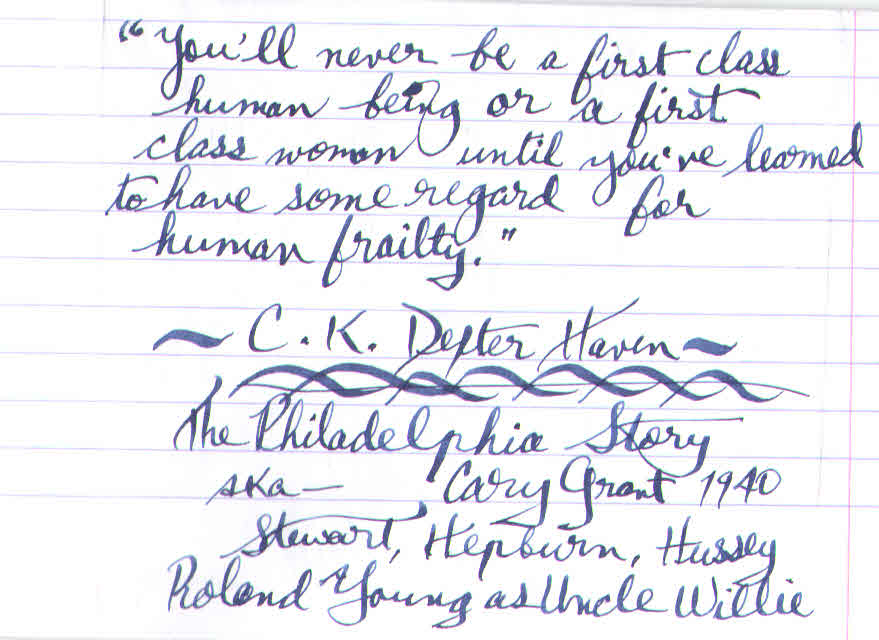 "You'll never be a first class
human being or a first
class woman until you've learned
to have some regard for
human frailty."
~ C. K. Dexter Haven ~
The Philadelphia Story
aka — Cary Grant 1940
Stewart, Hepburn, Hussey
Roland Young as Uncle Willie